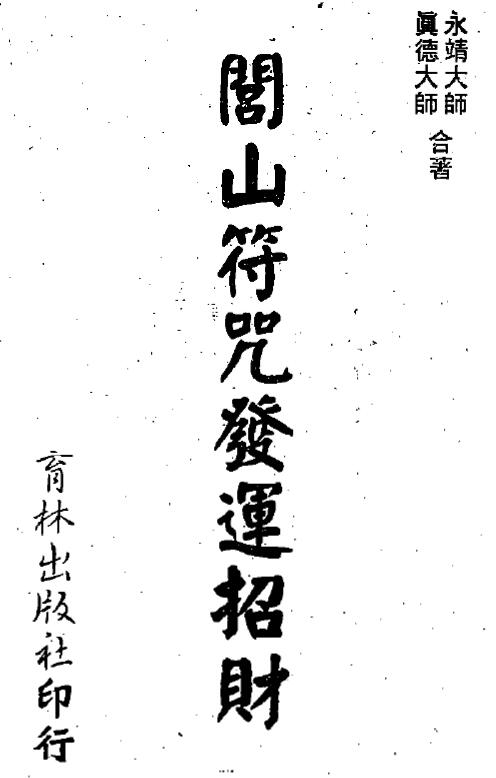 永靖大師
眞德大師
合著
閭山符咒發運招財
育林出版社印行